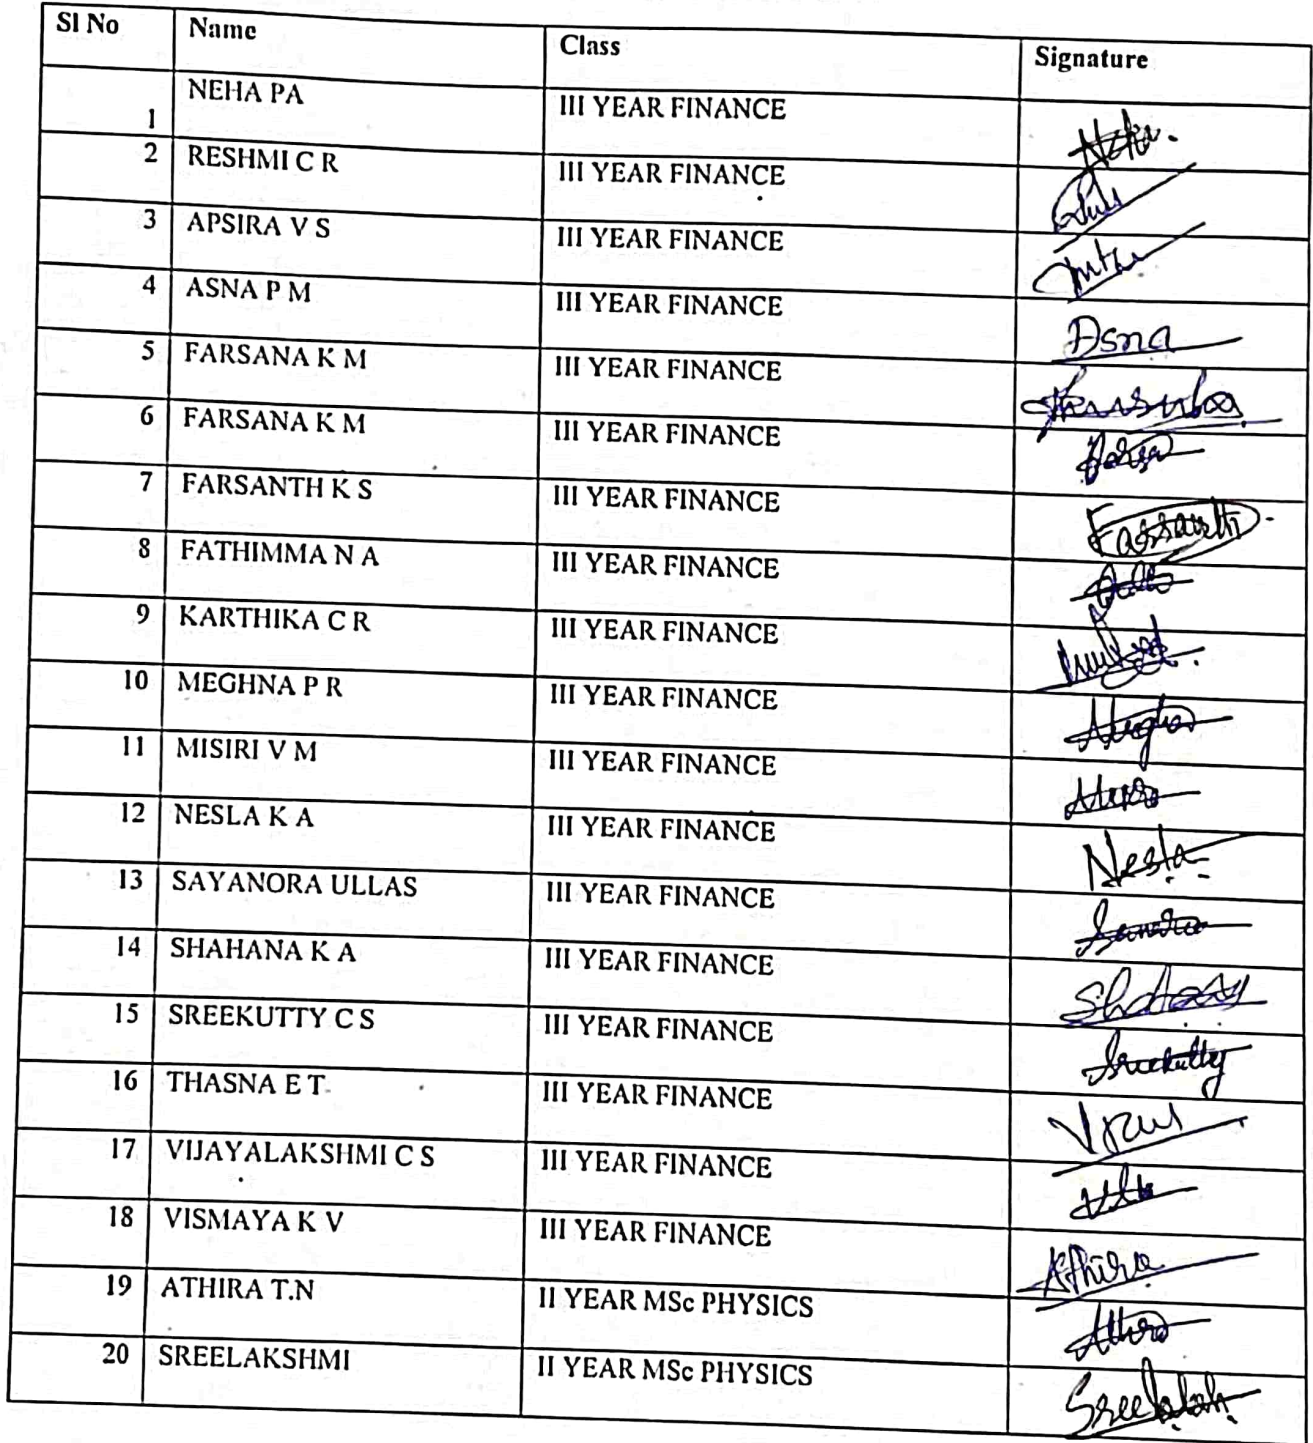 Sl No Name Class Signature
1 NEHA PA III YEAR FINANCE Neha.
2 RESHMI C R III YEAR FINANCE
3 APSIRA V S III YEAR FINANCE
4 ASNA P M III YEAR FINANCE Asna
5 FARSANA K M III YEAR FINANCE
6 FARSANA K M III YEAR FINANCE
7 FARSANTH K S III YEAR FINANCE Farsanth
8 FATHIMMA N A III YEAR FINANCE
9 KARTHIKA C R III YEAR FINANCE
10 MEGHNA P R III YEAR FINANCE
11 MISIRI V M III YEAR FINANCE
12 NESLA K A III YEAR FINANCE Nesla
13 SAYANORA ULLAS III YEAR FINANCE
14 SHAHANA K A III YEAR FINANCE
15 SREEKUTTY C S III YEAR FINANCE Sreekutty
16 THASNA E T III YEAR FINANCE
17 VIJAYALAKSHMI C S III YEAR FINANCE
18 VISMAYA K V III YEAR FINANCE Athira
19 ATHIRA T.N II YEAR MSc PHYSICS Athira
20 SREELAKSHMI II YEAR MSc PHYSICS